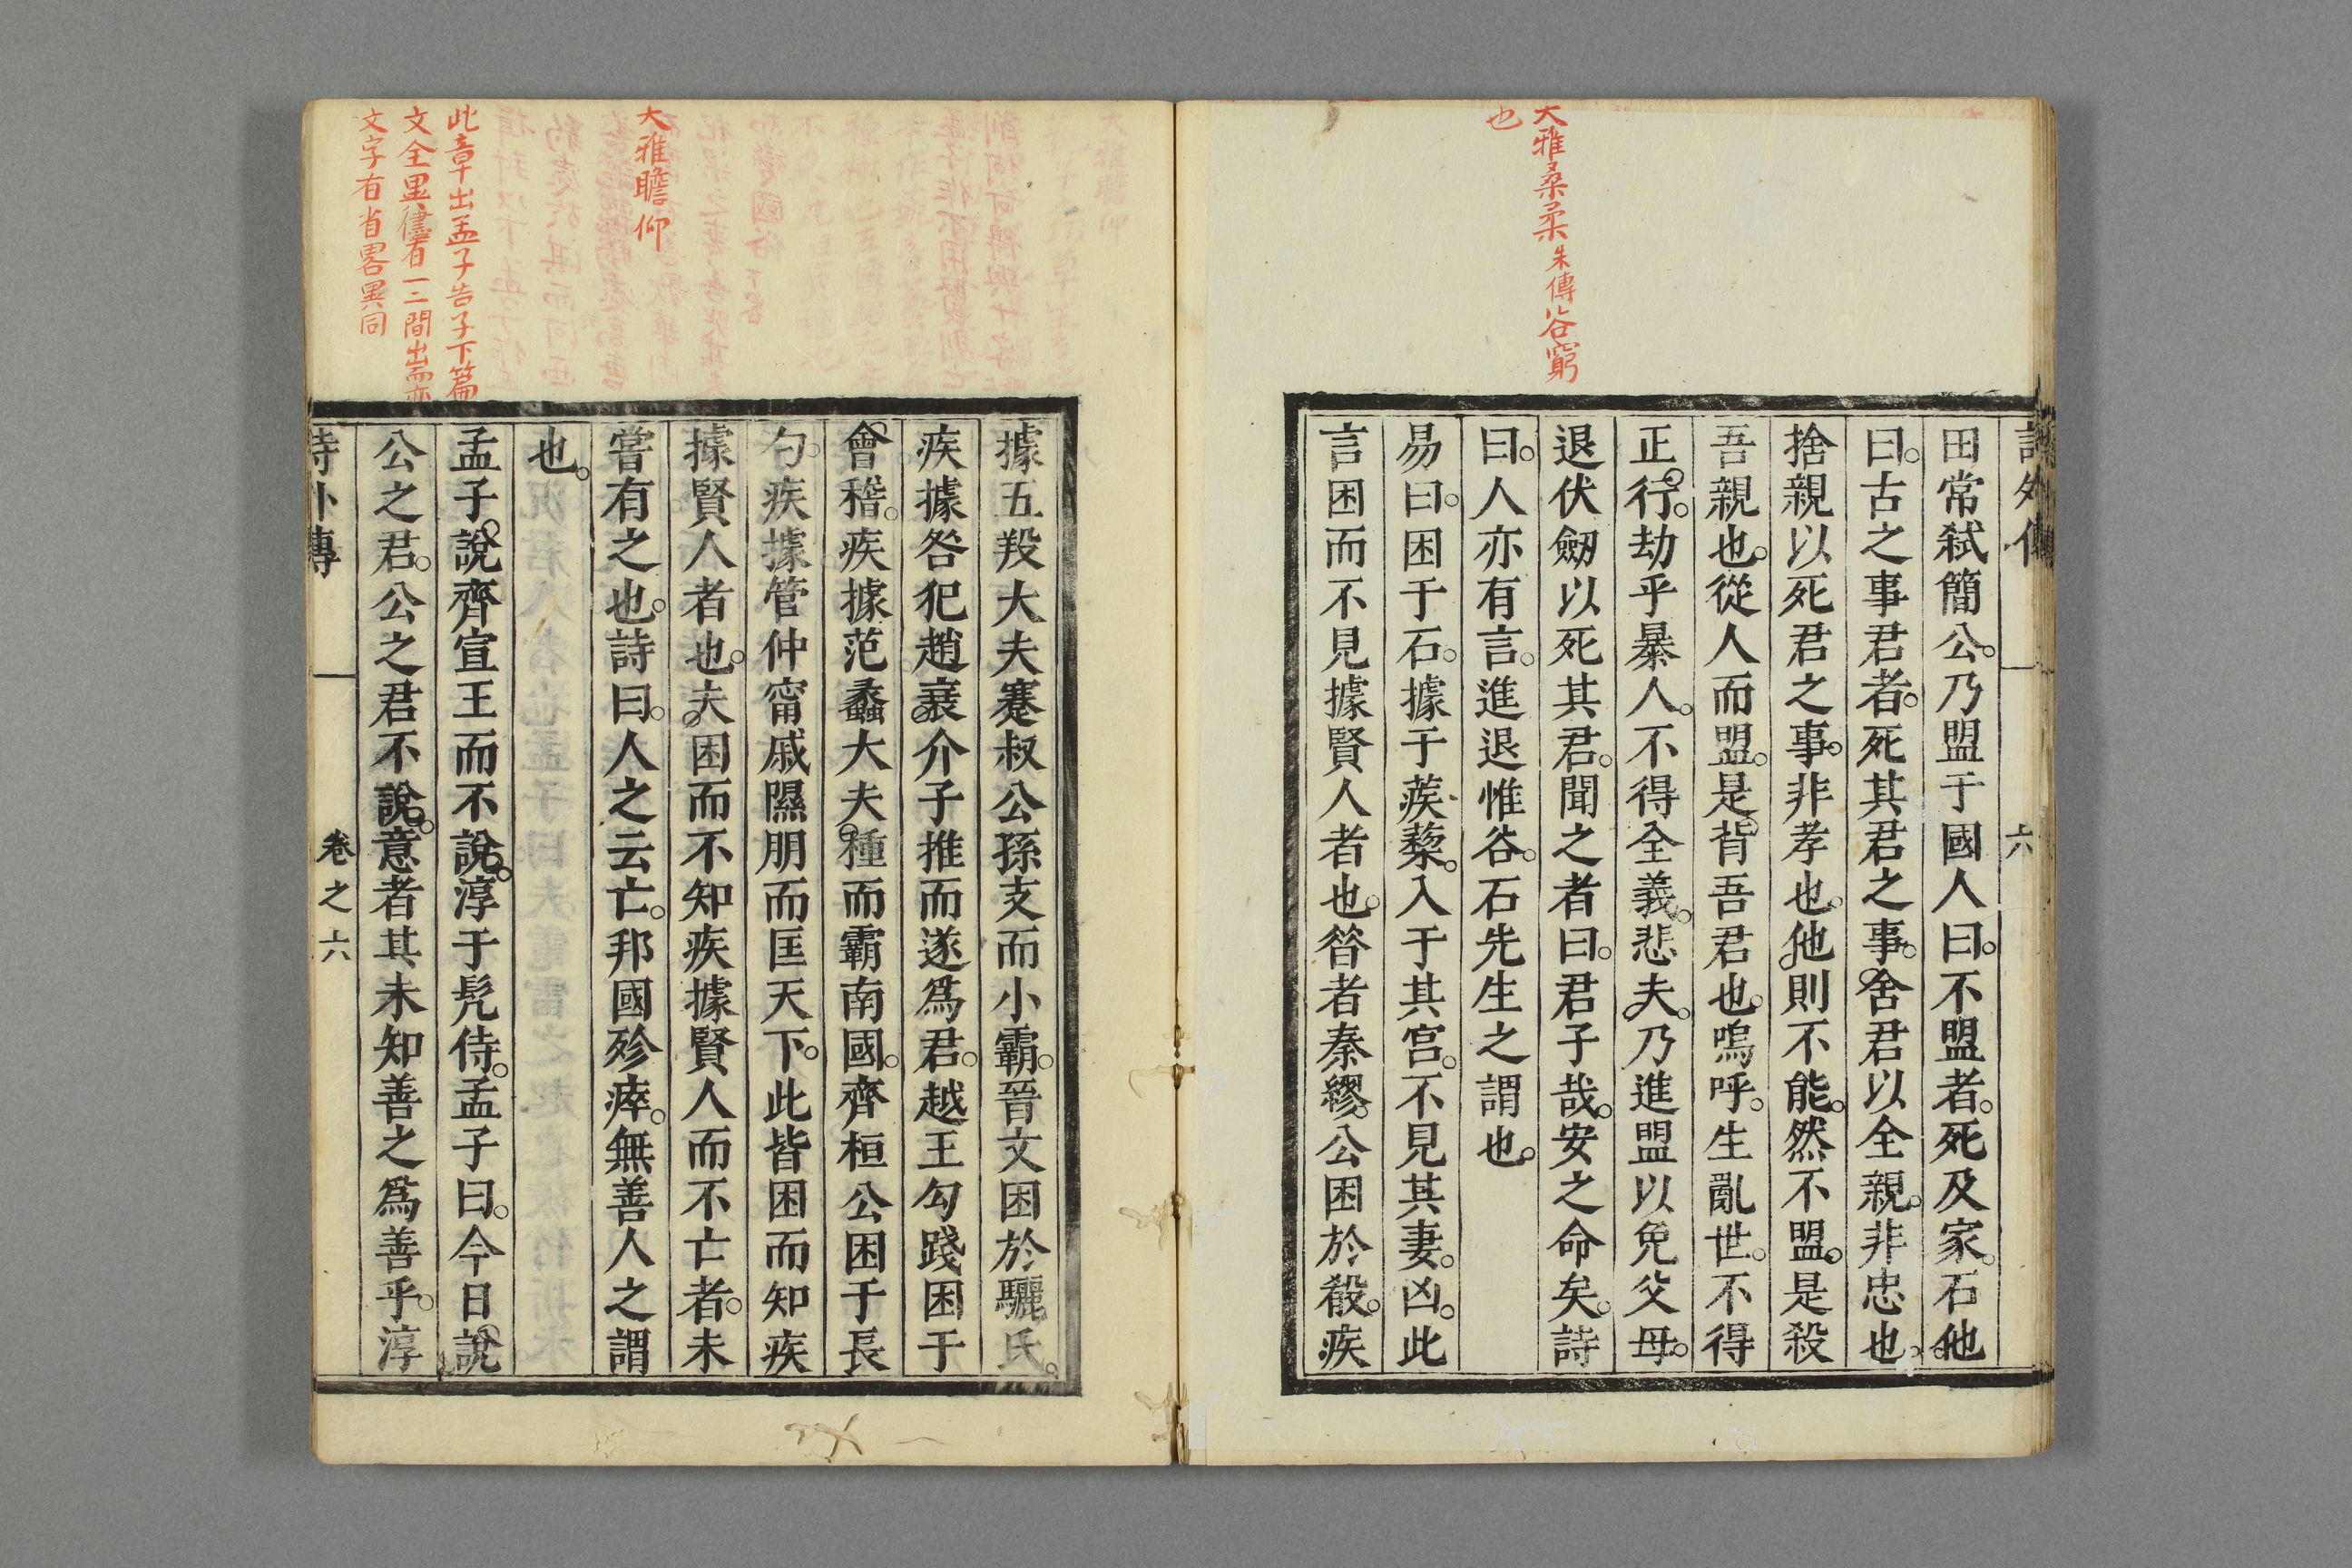 大雅桑柔朱傳谷窮
也
田常弑簡公。乃盟于國人曰。不盟者。死及家。石他
曰。古之事君者。死其君之事。舍君以全親。非忠也。
捨親以死君之事。非孝也。他則不能。然不盟。是殺
吾親也。從人而盟。是背吾君也。嗚呼。生亂世。不得
正行。劫乎暴人。不得全義。悲夫。乃進盟以免父母。
退伏劔以死其君。聞之者曰。君子哉。安之命矣。詩
曰。人亦有言。進退惟谷。石先生之謂也。
易曰。困于石。據于蒺蔾。入于其宮。不見其妻。凶。此
言困而不見據賢人者也。昝者秦繆公困於殽。疾
據五羖大夫蹇叔公孫支而小霸。晉文困於驪氏。
疾據咎犯趙衰介子推而遂爲君。越王勾踐困于
會稽。疾據范蠡大夫種而霸南國。齊桓公困于長
勺。疾據管仲甯戚隰朋而匡天下。此皆困而知疾
據賢人者也。夫困而不知疾據賢人而不亡者。未
嘗有之也。詩曰。人之云亡。邦國殄瘁。無善人之謂
也。
孟子說齊宣王而不說。淳于髡侍。孟子曰。今日說
公之君。公之君不說。意者其未知善之爲善乎。淳
詩外傳 卷之六
大雅瞻仰
此章出孟子告子下篇
文全異僅有一二間出而亦
文字有省畧異同